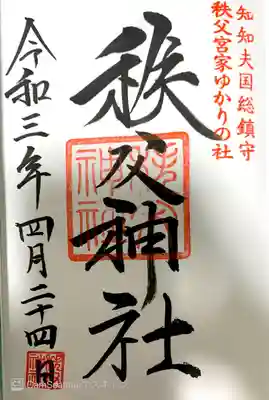 知知夫国総鎮守
秩父宮家ゆかりの社
秩父神社
令和三年四月二十四日
秩父神社